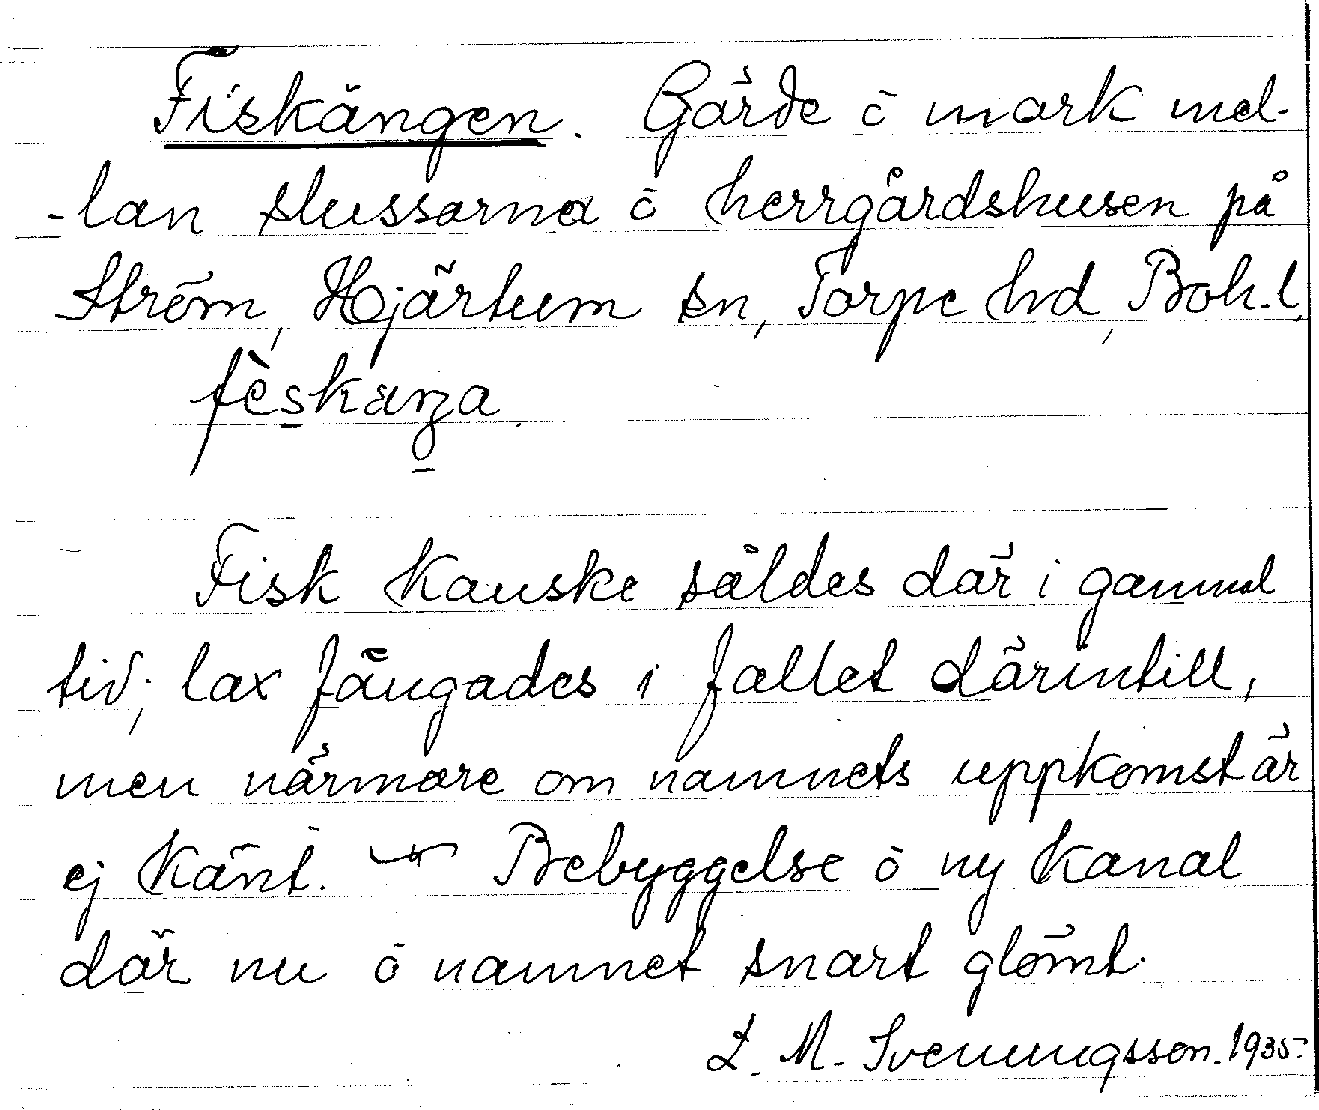 Fiskängen. Gärde ö mark mel-
-lan slussarna ö herrgårdshusen på
Ström, Hjärtum sn, Torpe hd, Boh. l.
fèskæŋa.
Fisk kanske såldes där i gammal
tid; lax fångades i fallet därintill,
men närmare om namnets uppkomst är
ej känt. Bebyggelse ö ny kanal
där nu ö namnet snart glömt.
L. M. Svenungsson. 1935.